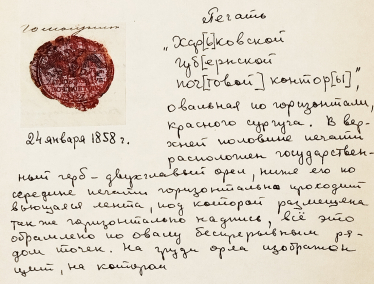 Печать
„Хар[ь]ковской
губ[ернской
поч[товой] контор[ы]",
овальная по горизонтали,
красного сургуча. В вер-
хней половине печати
расположен государствен-
24 января 1858 г.
ный герб – двухглавый орел, ниже его по
середине печати горизонтально проходит
вьющаяся лента, под которой размещена
также горизонтально надпись, всё это
обрамлено по овалу беспрерывным ря-
дом точек. На груди орла изображён
щит, на котором